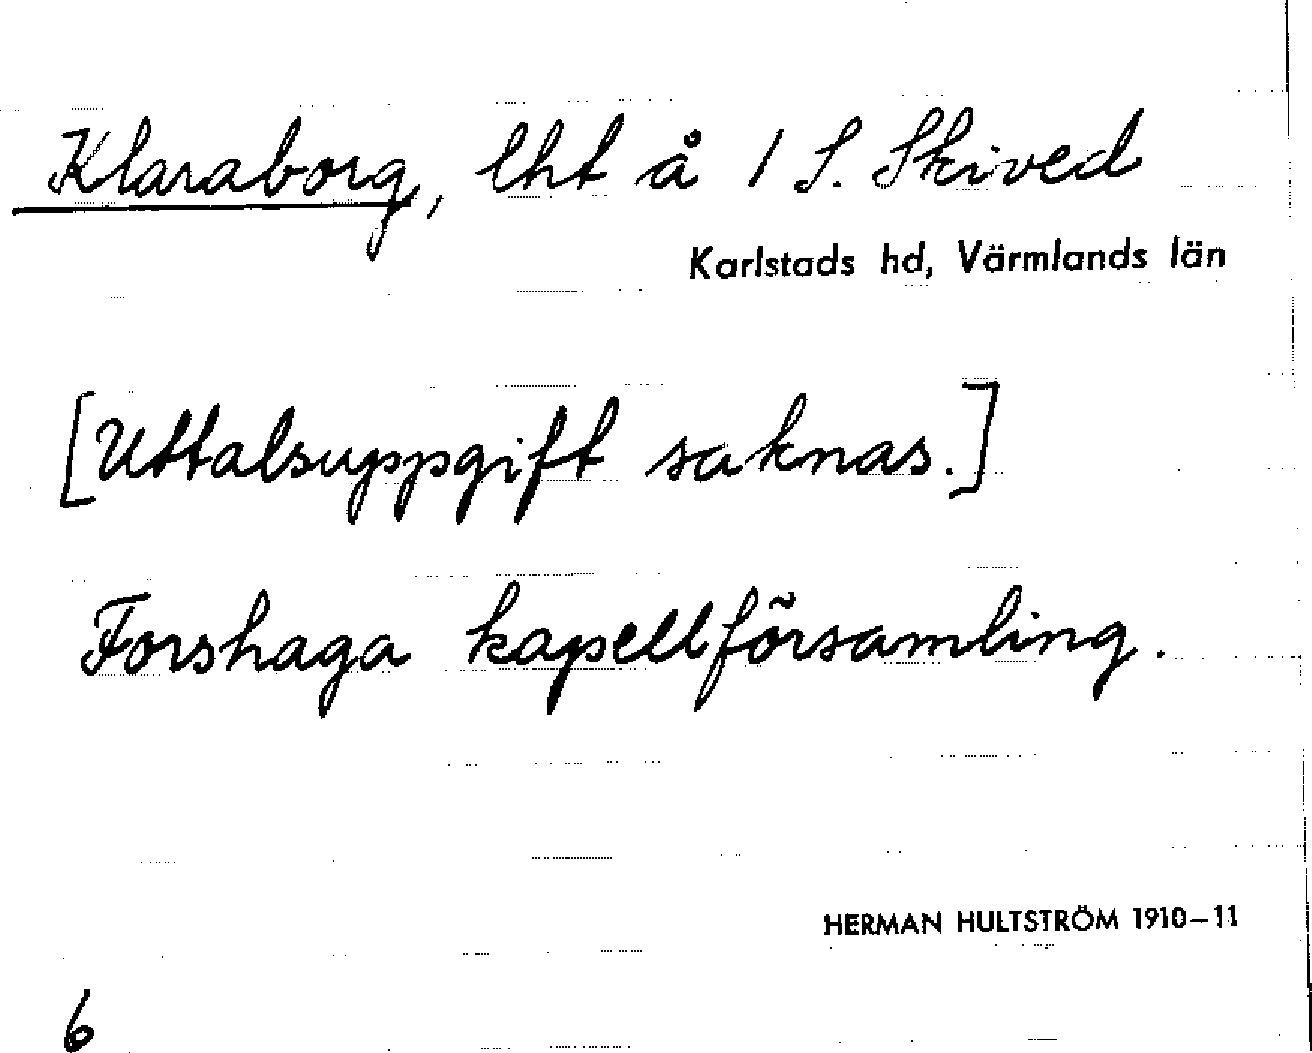 Klaraborg, lht å 1 S. Skived
Karlstads hd, Värmlands län
[Uttalsuppgift saknas.]
Forshaga kapellförsamling.
HERMAN HULTSTRÖM 1910–11
6